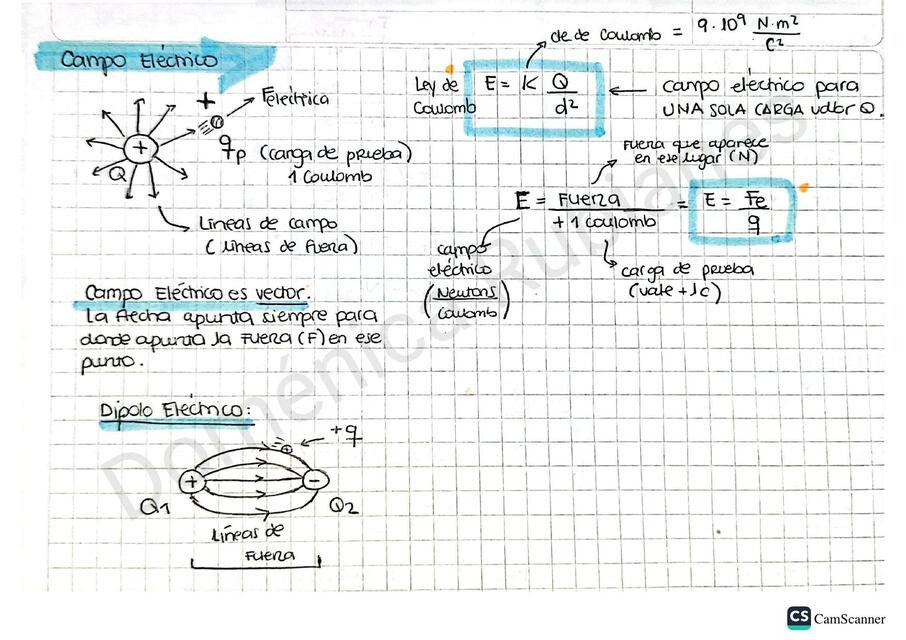 cte de Coulomb = 9·10⁹ N·m²/C²
Campo Eléctrico
+
Feléctrica
Ley de
Coulomb
E = K Q/d²
campo eléctrico para
UNA SOLA CARGA valor Q.
+
Q
qp (carga de prueba)
1 Coulomb
Líneas de campo
(Líneas de fuerza)
Fuerza que aparece
en ese lugar (N)
E = Fuerza/+1 coulomb = E = Fe/q
campo
eléctrico
(Newtons/Coulomb)
carga de prueba
(vale +1c)
Campo Eléctrico es vector.
La flecha apunta siempre para
donde apunta la Fuerza (F) en ese
punto.
Dipolo Eléctrico:
+q
+
-
Q1
Q2
Líneas de
Fuerza
Doménica Rubianes
CS CamScanner